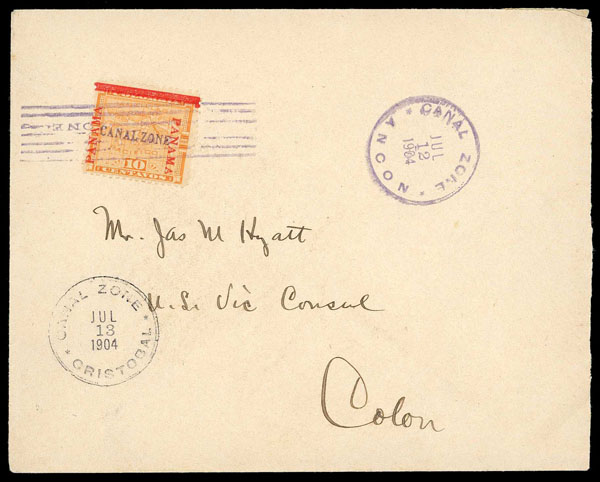 PANAMA
CANAL ZONE
PANAMA
10
CENTAVOS
ZONE
CANAL ZONE
JUL
12
1904
ANCON
Mr. Jas M Hyatt
U.S. Vic Consul
Colon
CANAL ZONE
JUL
13
1904
CRISTOBAL